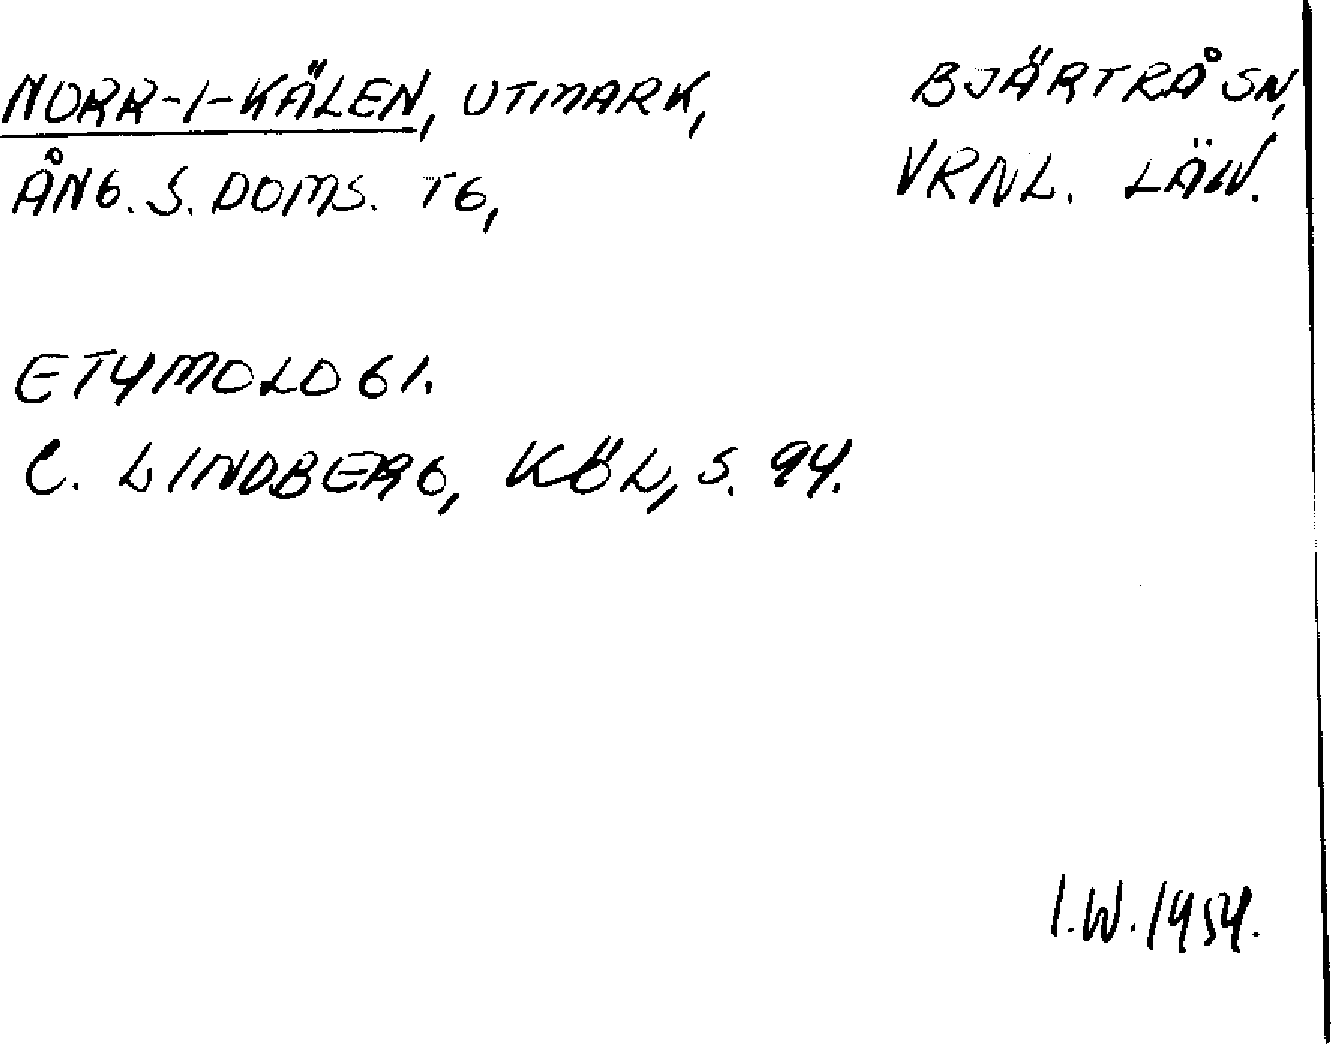 NORR-I-KÄLEN, UTMARK, BJÄRTRÅ SN,
ÅNG. S. DOMS. TG, VRNL. LÄN.
ETYMOLOGI.
C. LINDBERG, KÖL, S. 94.
I.W. 1954.